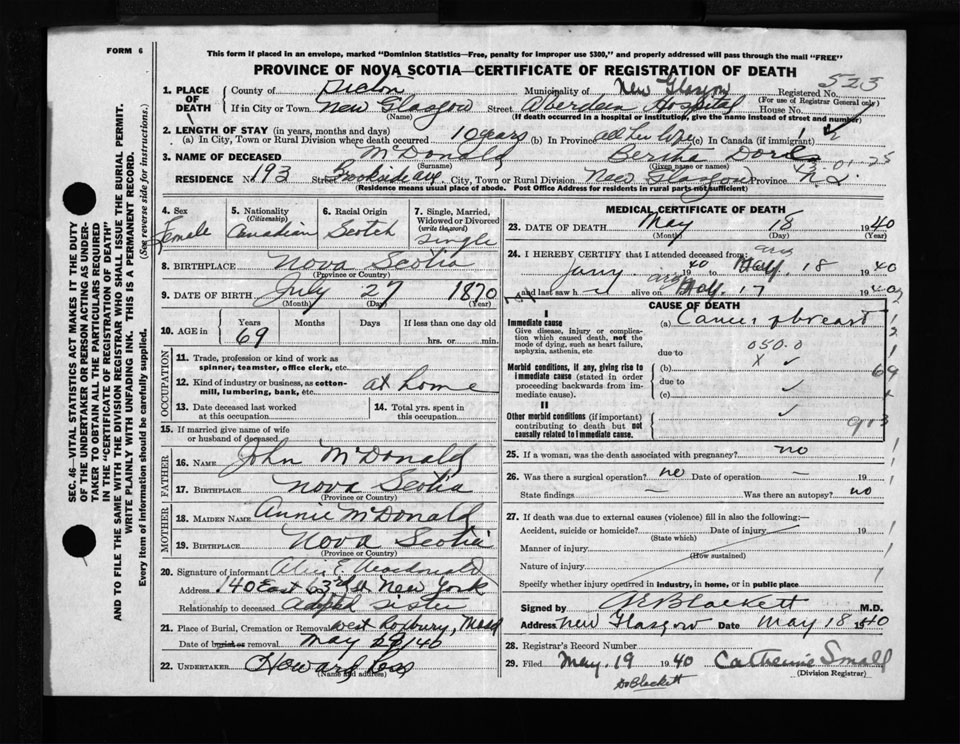 FORM 6
This form if placed in an envelope, marked "Dominion Statistics—Free, penalty for improper use $300," and properly addressed will pass through the mail "FREE"
PROVINCE OF NOVA SCOTIA—CERTIFICATE OF REGISTRATION OF DEATH
523
1. PLACE OF DEATH County of Pictou Municipality of New Glasgow Registered No.
(For use of Registrar General only)
If in City or Town New Glasgow Street Aberdeen Hospital House No.
(Name) (If death occurred in a hospital or institution, give the name instead of street and number)
2. LENGTH OF STAY (in years, months and days)
(a) In City, Town or Rural Division where death occurred 10 years (b) In Province all her life (c) In Canada (if immigrant)
3. NAME OF DECEASED McDonald Bertha Doris
(Surname) (Given name or names)
01-25
RESIDENCE No 193 Street Brookside ave. City, Town or Rural Division New Glasgow Province N.S.
(Residence means usual place of abode. Post Office Address for residents in rural parts not sufficient)
4. Sex Female
5. Nationality (Citizenship) Canadian
6. Racial Origin Scotch
7. Single, Married, Widowed or Divorced (write the word) single
8. BIRTHPLACE Nova Scotia
(Province or Country)
9. DATE OF BIRTH July 27 1870
(Month) (Day) (Year)
10. AGE in Years Months Days If less than one day
69 hrs. or min.
OCCUPATION
11. Trade, profession or kind of work as spinner, teamster, office clerk, etc.
12. Kind of industry or business, as cotton-mill, lumbering, bank, etc. at home
13. Date deceased last worked at this occupation
14. Total yrs. spent in this occupation
15. If married give name of wife or husband of deceased
FATHER
16. NAME John McDonald
17. BIRTHPLACE Nova Scotia
(Province or Country)
MOTHER
18. MAIDEN NAME Annie McDonald
19. BIRTHPLACE Nova Scotia
(Province or Country)
20. Signature of informant Alice E. Macdonald
Address 140 East 63rd St. New York
Relationship to deceased adopted sister
21. Place of Burial, Cremation or Removal West Roxbury, Mass
Date of burial or removal May 20/40
22. UNDERTAKER Howard Ross
(Name and address)
MEDICAL CERTIFICATE OF DEATH
23. DATE OF DEATH May 18 1940
(Month) (Day) (Year)
24. I HEREBY CERTIFY that I attended deceased from:
Jany. 1940 to May. 18 1940
and last saw h alive on May. 17 1940
CAUSE OF DEATH
I
Immediate cause (a) Cancer of breast
Give disease, injury or complication which caused death, not the mode of dying, such as heart failure, asphyxia, asthenia, etc
050.0
due to
X
Morbid conditions, if any, giving rise to immediate cause (stated in order proceeding backwards from immediate cause).
(b)
69
due to
(c)
II
Other morbid conditions (if important) contributing to death but not causally related to immediate cause.
913
25. If a woman, was the death associated with pregnancy? no
26. Was there a surgical operation? no Date of operation — 19
State findings — Was there an autopsy? no
27. If death was due to external causes (violence) fill in also the following:—
Accident, suicide or homicide? Date of injury 19
(State which)
Manner of injury
(How sustained)
Nature of injury
Specify whether injury occurred in industry, in home, or in public place
Signed by Blackett M.D.
Address New Glasgow Date May 18 1940
28. Registrar's Record Number
29. Filed May. 19 1940 Catherine Small
(Division Registrar)
Dr Blackett
SEC. 46—VITAL STATISTICS ACT MAKES IT THE DUTY
OF THE UNDERTAKER OR PERSON ACTING AS UNDER-
TAKER TO OBTAIN ALL THE PARTICULARS REQUIRED
IN THE "CERTIFICATE OF REGISTRATION OF DEATH"
AND TO FILE THE SAME WITH THE DIVISION REGISTRAR WHO SHALL ISSUE THE BURIAL PERMIT.
WRITE PLAINLY WITH UNFADING INK. THIS IS A PERMANENT RECORD.
Every item of information should be carefully supplied. (See reverse side for instructions.)